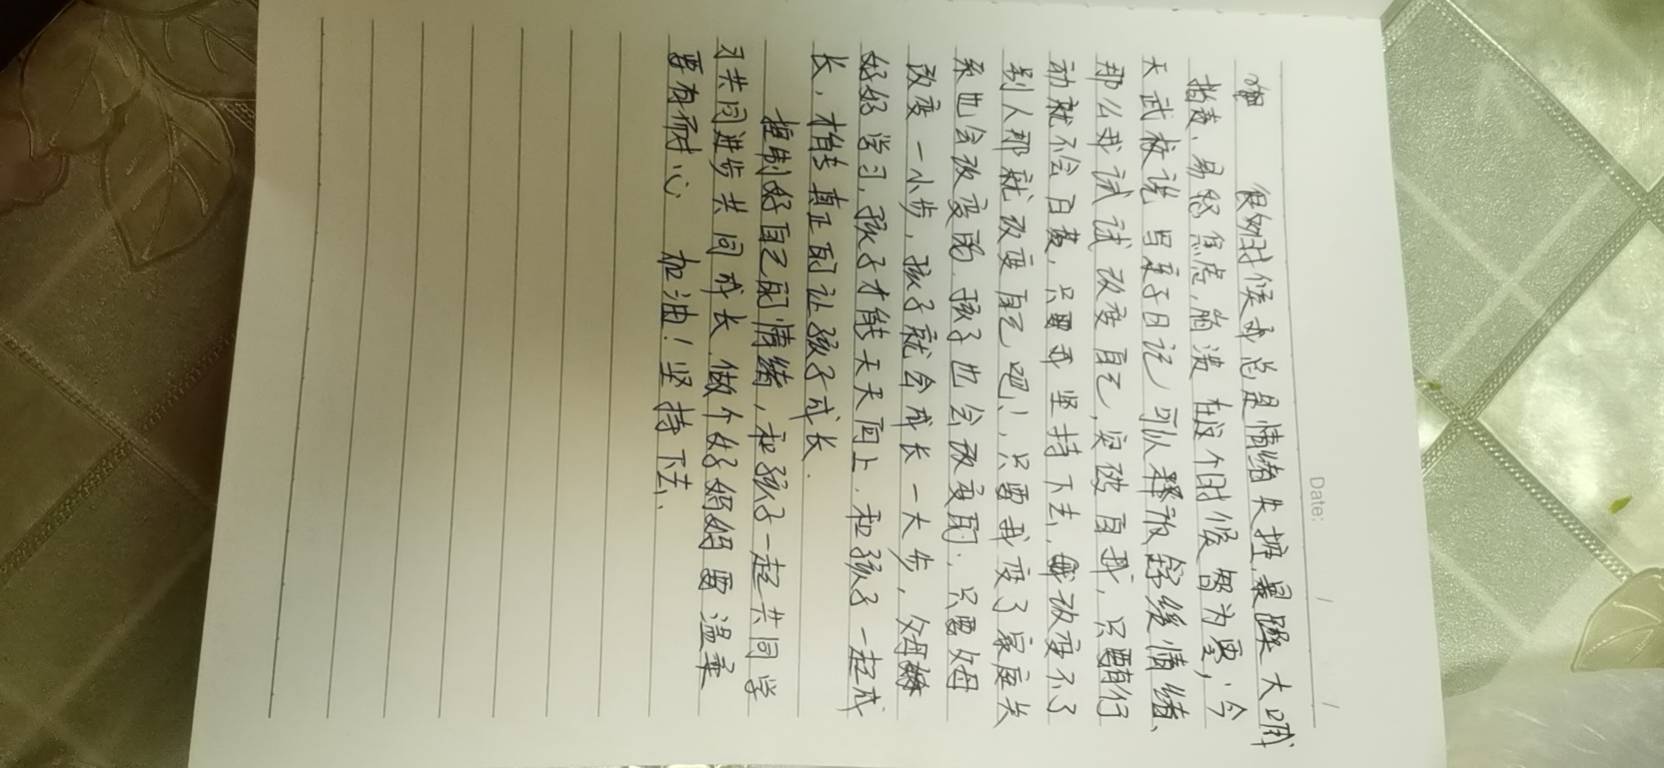 Date: / /
很多时候我总是情绪失控、暴躁、大喊
指责、易怒焦虑,崩溃 在这个时候 智为要,今
天武校说 写亲子日记 可以释放舒缓情绪、
那么我试试改变自己,突破自我,只要有行
动就不会白费,只要我坚持下去,改变不了
别人那就改变自己吧!,只要我变了家庭关
系也会改变的.孩子也会改变的.只要父母
改变一小步,孩子就会成长一大步,父母
好好学习,孩子才能天天向上.和孩子一起成
长,才能真正的让孩子成长.
控制好自己的情绪,和孩子一起共同学
习共同进步共同成长.做个好妈妈要温柔
要有耐心 加油!坚持下去、